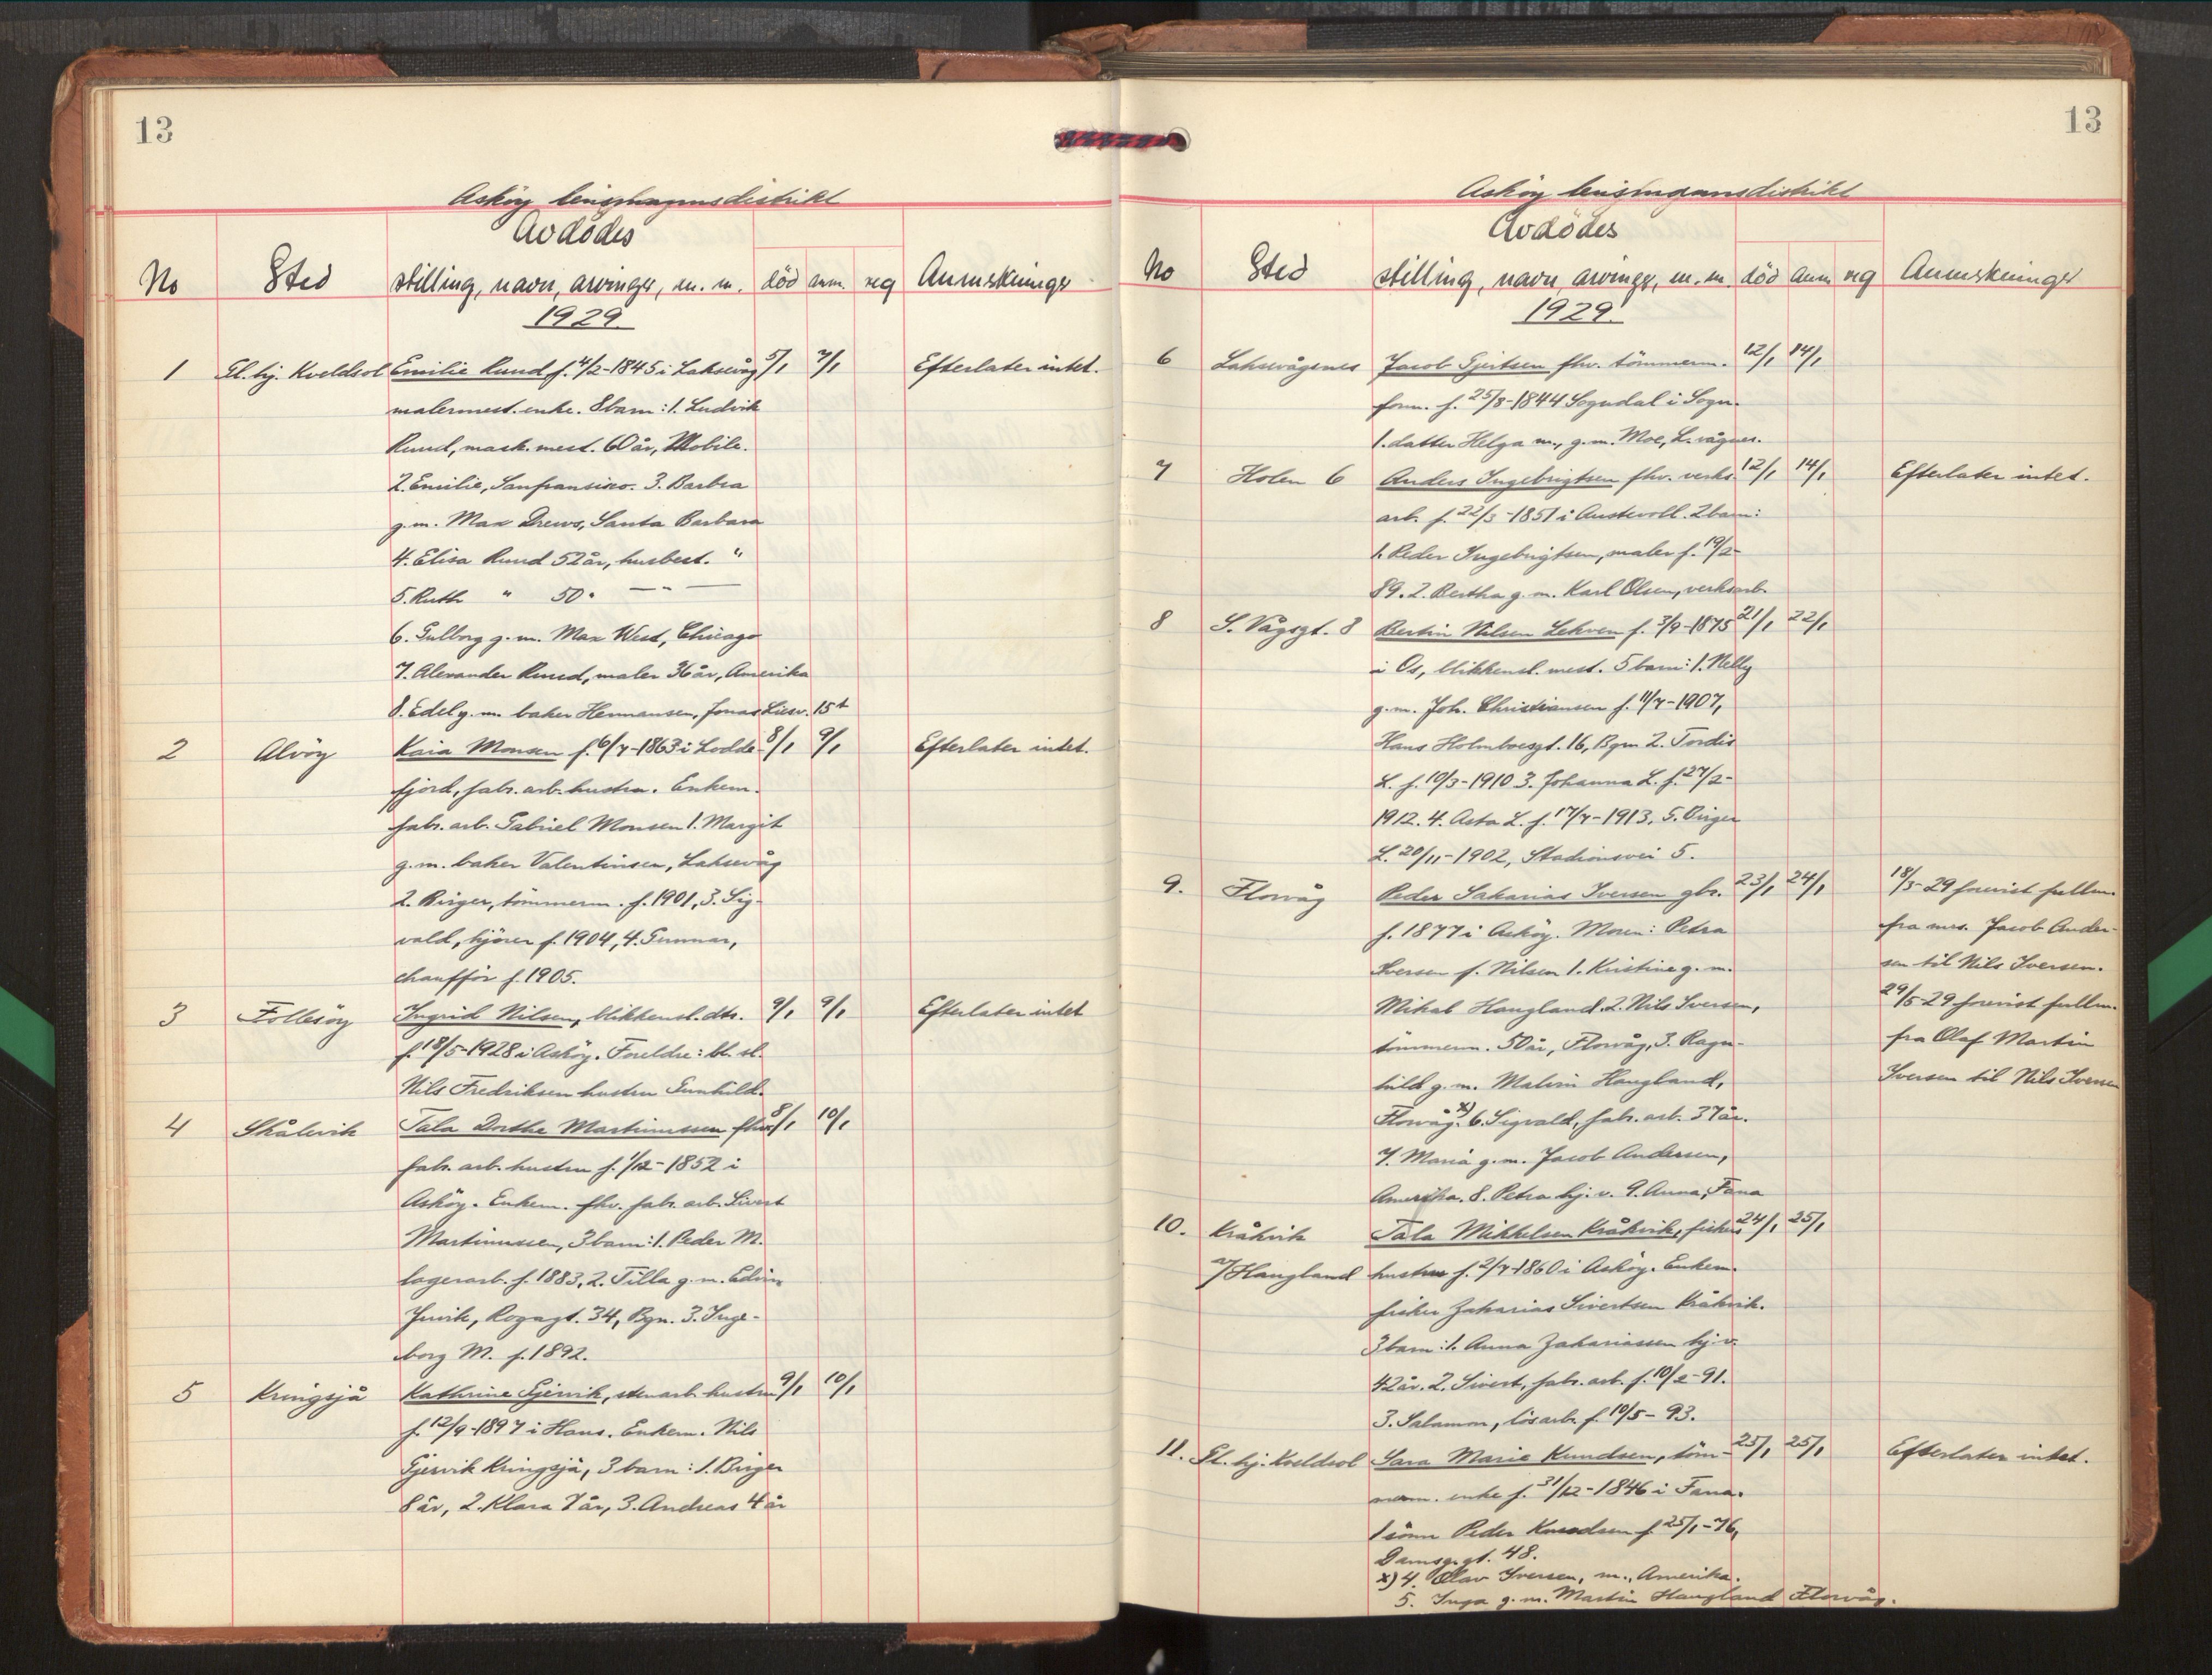 13
Asköy lensmannsdistrikt
Avdödes
No Sted stilling, navn, arvinger, m. m. död anm. reg Anmerkninger
1929
1 Gl. hj. Kveldsol Emilie Ruud f. 4/2-1845 i Laksevåg 5/1 7/1 Efterlater intet.
malermest. enke. 8 barn: 1. Ludvik
Ruud, mask. mest. 60 år, Mobile.
2. Emilie, Sanfransisco. 3. Barbra
g. m. Max Drews, Santa Barbara
4. Elisa Ruud 52 år, husbest. "
5. Ruth " 50 " — " —
6. Gulborg g. m. Max West, Chicago
7. Alexander Ruud, maler 36 år, Amerika
8. Edel g. m. baker Hermansen, Jonas Liesv. 15 b
2 Alvöy Kaia Monsen f. 6/7-1863 i Lodde- 8/1 9/1 Efterlater intet.
fjord, fabr. arb. hustru. Enkem.
fabr. arb. Gabriel Monsen 1. Margit
g. m. baker Valentinsen, Laksevåg
2. Birger, tömmerm. f. 1901, 3. Sig-
vald, kjörer f. 1904, 4. Gunnar,
chaufför f. 1905.
3 Follesöy Ingrid Nilsen, blikkensl. dtr. 9/1 9/1 Efterlater intet
f. 18/5-1928 i Asköy. Foreldre: bl. sl.
Nils Fredriksen hustru Gunhild.
4 Skålevik Tala Dorthe Martinussen fhv. 8/1 10/1
fabr. arb. hustru f. 1/12-1852 i
Asköy. Enkem. fhv. fabr. arb. Sivert
Martinussen, 3 barn: 1. Peder M.
lagerarb. f. 1883, 2. Tilla g. m. Edvin
Juvik, Rogagt. 34, Bgn. 3. Inge-
borg M. f. 1892.
5 Kringsjå Kathrine Gjervik, stenarb. hustru 9/1 10/1
f. 12/9-1897 i Haus. Enkem. Nils
Gjervik Kringsjå, 3 barn: 1. Birger
8 år, 2. Klara 7 år, 3. Andreas 4 år
13
Asköy lensmannsdistrikt
Avdödes
No Sted stilling, navn, arvinger, m. m. död anm reg Anmerkninger
1929
6 Laksevågsnes Jacob Gjertsen fhv. tömmerm. 12/1 14/1
form. f. 25/8-1844 Sogndal i Sogn.
1. datter Helga m., g. m. Moe, L. vågnes.
7 Holen 6 Anders Ingebrigtsen fhv. verks. 12/1 14/1 Efterlater intet.
arb. f. 22/3-1851 i Austevoll. 2 barn:
1. Peder Ingebrigtsen, maler f. 19/2-
89. 2. Bertha g. m. Karl Olsen, verksarb.
8 S. Vågsgt. 8 Bertin Nilsen Lekven f. 3/9-1875 21/1 22/1
i Os, blikkensl. mest. 5 barn: 1. Nelly
g. m. Joh. Christiansen f. 11/7-1907,
Hans Holmboesgt. 16, Bgn 2. Tordis
L. f. 10/3-1910 3. Johanna L. f. 27/2-
1912. 4. Asta L. f. 17/7-1913, 5. Birger
L. 20/11-1902, Stadionsvei 5.
9. Florvåg Peder Sakarias Iversen gbr. 23/1 24/1 18/3-29 forevist fullm.
f. 1877 i Asköy. Moren: Petra fra mrs. Jacob Ander-
Iversen f. Nilsen 1. Kristine g. m. sen til Nils Iversen.
Mikal Haugland. 2. Nils Iversen, 29/5-29 forevist fullm.
tömmerm. 50 år, Florvåg, 3. Ragn- fra Olaf Martin
hild g. m. Malvin Haugland, Iversen til Nils Iversen
Florvåg. x) 6. Sigvald, fabr. arb. 37 år.
7. Maria g. m. Jacob Andersen,
Amerika. 8. Petra hj. v. 9. Anna, Fana
10. Kråkvik Tala Mikkelsen Kråkvik, fisker 24/1 25/1
av Haugland hustru f. 2/7-1860 i Asköy. Enkem.
fisker Zakarias Sivertsen Kråkvik.
3 barn: 1. Anna Zakariassen hj. v.
42 år. 2. Sivert, fabr. arb. f. 10/2-91.
3. Salamon, lösarb. f. 10/5-93.
11. Gl. hj. Kveldsol Sara Marie Knudsen, töm- 25/1 25/1 Efterlater intet.
merm. enke f. 31/12-1846 i Fana.
1 sönn Peder Knudsen f. 25/1-76,
Damsg.gt. 48.
x) 4. Olav Iversen, m., Amerika.
5. Inga g. m. Martin Haugland Florvåg.